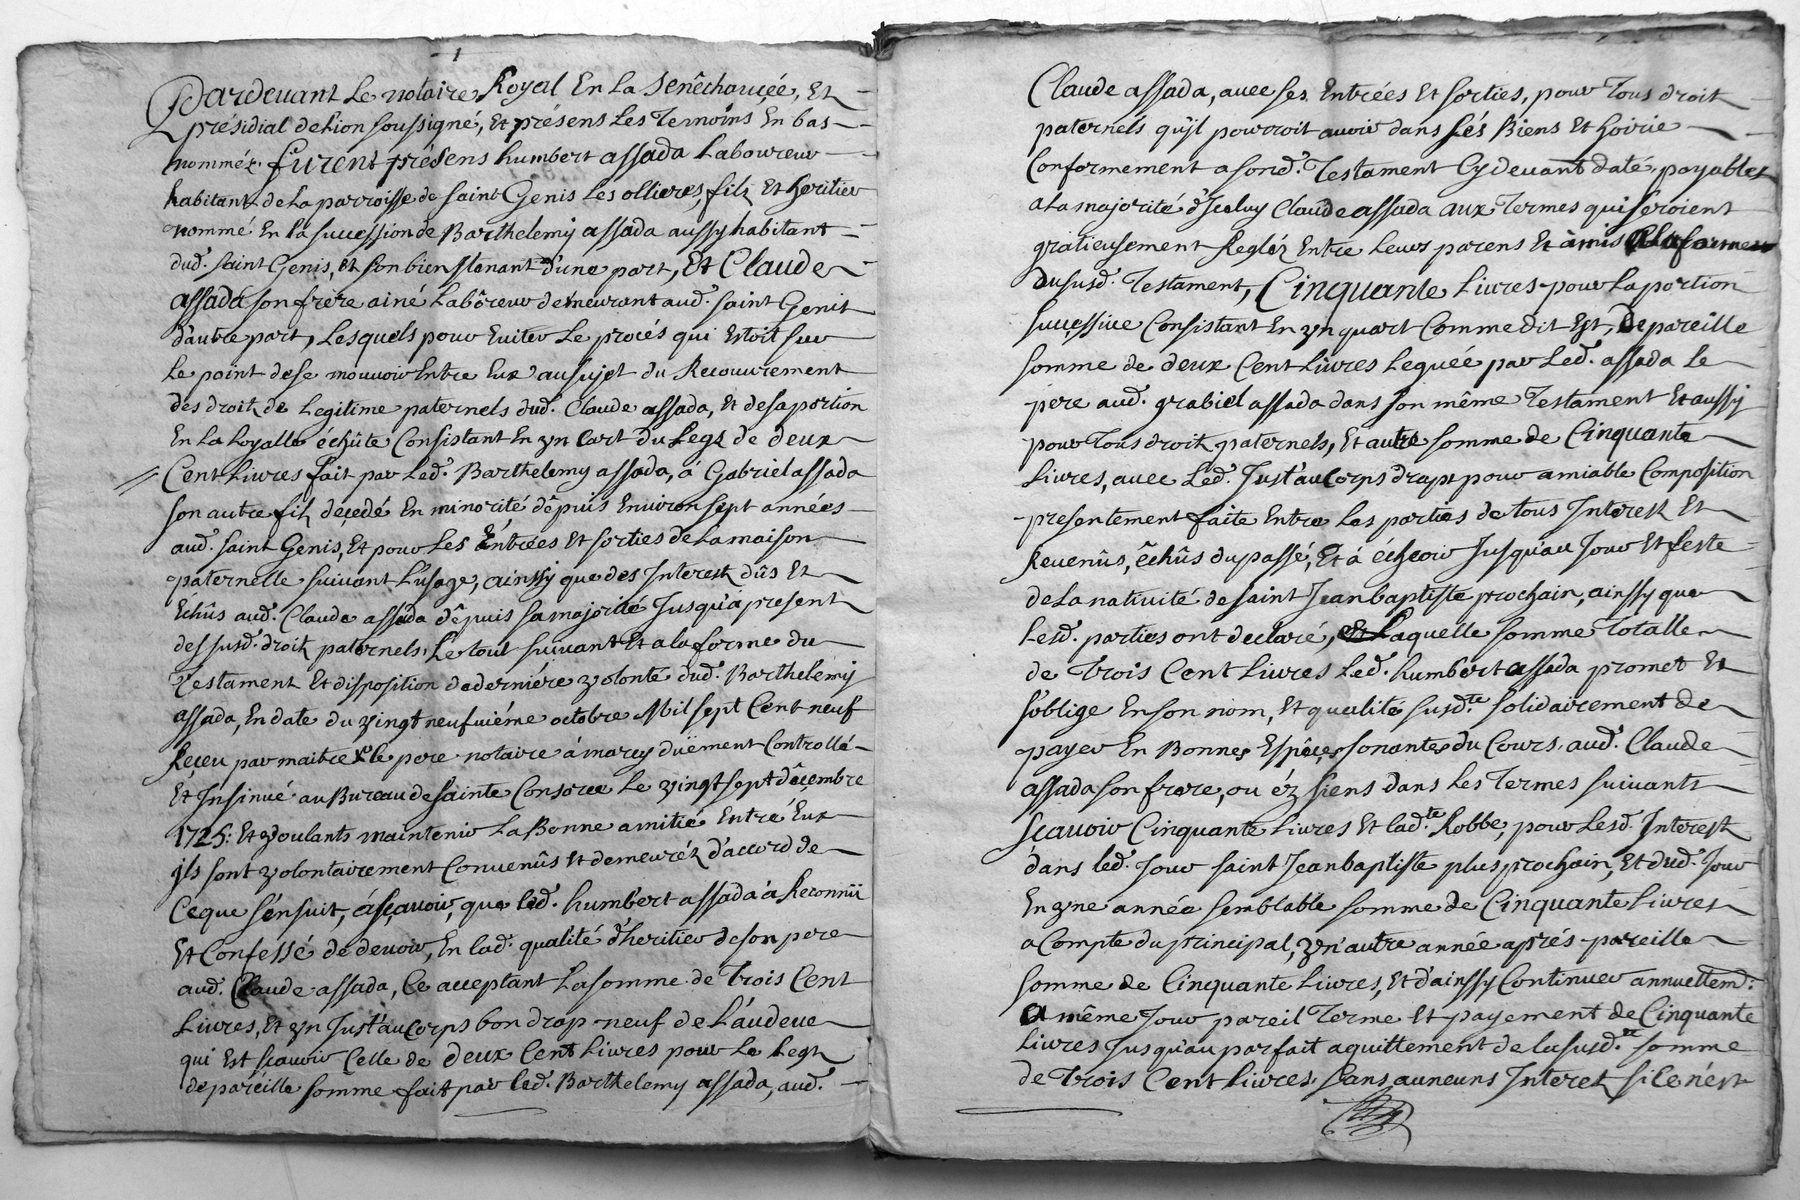 1
Pardevant Le notaire Royal En La Senêchaucée, Et
présidial deLion soussigné, Et présens Les Temoins En bas
nommés. furent présens humbert assada Laboureur
habitant de La parroisse de saint Genis Les ollieres, fils Et heritier
nommé En la succession de Barthelemy assada aussy habitant
dud. saint Genis, Et son bien stenant d'une part, Et Claude
assada son frere ainé Labôreur demeurant aud. saint Genis
d'autre part, Lesquels pour Eviter Le procés qui Estoit sur
Le point dese mouvoir Entre Eux au sujet du Recouvrement
des droits de Legitime paternels dud. Claude assada, Et desaportion
En La Loyalle échûte Consistant En yn Cart du Legs de deux
Cent Livres fait par Led. Barthelemy assada, à Gabriel assada
son autre fils déçedé En minorité dêpuis Environ sept années
aud. saint Genis, Et pour Les Entrées Et sorties de La maison
paternelle suivant L'usage, ainssy que des Interests dûs Et
Echûs aud. Claude assada dêpuis samajorité Jusqu'à present
des susd. droits paternels, Le tout suivant Et a la forme du
Testament Et disposition de derniére volonté dud. Barthelemy
assada, En date du vingt neufviéme octobre Mil sept Cent neuf
Receu par maitre le pere notaire à marcy düement Controllé
Et Insinué au Bureau de sainte Consorce Le vingt sept dêçembre
1725: Et voulants maintenir La Bonne amitié Entré Eux
ils sont volontairement Convenûs Et demeurés d'accord de
Ceque s'énsuit, ásçavoir, que Led. humbert assada à Reconnü
Et Confessé de devoir, En lad. qualité d'heritier deson pere
aud. Claude assada, Ce acceptant La somme de Trois Cent
Livres, Et yn Just'auCorps bon drap neuf de L'audeve
qui Est scavoir Celle de deux Cent Livres pour Le Legs
de paréille somme fait par Led. Barthelemy assada, aud.
Claude assada, avec ses Entrées Et sorties, pour Tous droits
paternels qu'jl pourroit avoir dans sés Biens Et hoirie
Conformement a sond. Testament Cy devant daté, payables
a La majorité d'Jceluy Claude assada aux Termes qui seroient
gratieusement Reglés Entre Leurs parens Et àmis alaforme
du susd. Testament, Cinquante Livres pour La portion
sucçessive Consistant En yn quart Comme dit Est, de pareille
somme de deux Cent Livres Leguéé par Led. assada Le
pere aud. grabiel assada dans son même Testament Et aussy
pour Tous droits paternels, Et autre somme de Cinquante
Livres, avec Led. Just'auCorps drap pour amiable Composition
presentement faite Entre Les parties de tous Interests Et
Revenûs, êchûs du passé, Et à échçoir Jusqu'au Jour Et feste
de La nativité de saint Jean baptiste prochain, ainssy que
Lesd. parties ont declaré, Laquelle somme Totalle
de Trois Cent Livres Led. humbert assada promet Et
s'oblige En son nom, Et qualité susd.te solidairement de
payer En Bonnes Espêçes sonantes du Cours, aud. Claude
assada son frere, ou éz siens dans Les Termes suivants
scavoir Cinquante Livres Et lad.te Robbe, pour Lesd. Interests
dans led. Jour saint Jean baptiste plus prochain, Et dud. Jour
En yne année semblable somme de Cinquante Livres
a Compte du principal, yn'autre année aprés pareille
somme de Cinquante Livres, Et d'ainssy Continuer annuellem.
A même Jour pareil Terme Et payement de Cinquante
Livres Jusqu'au parfait aquittement de la susd. somme
de Trois Cent Livres, sans aucuns Interest si Ce n'est